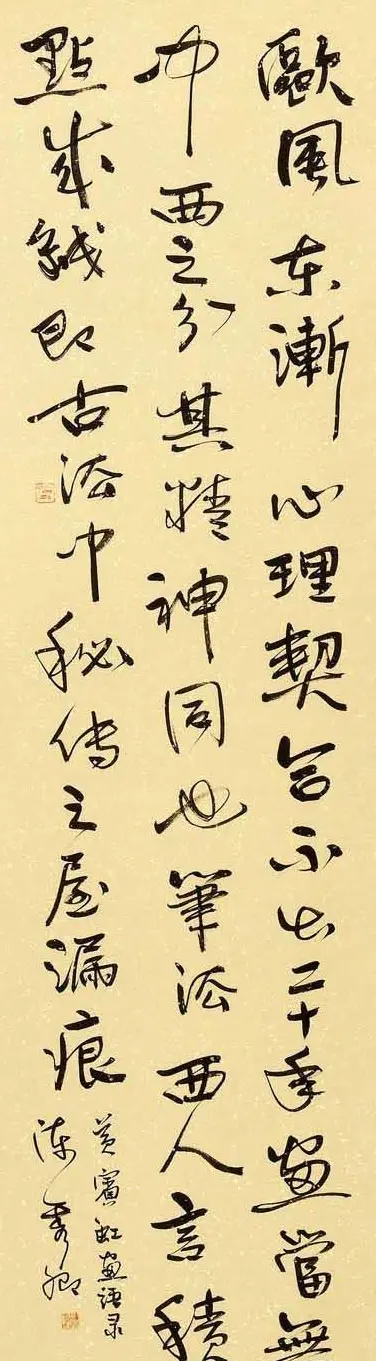 歐風东漸心理契合不出二十年畫當無
中西之分其精神同也筆法西人言積
點成線即古法中秘传之屋漏痕
黄賓虹画语录
陈秀卿